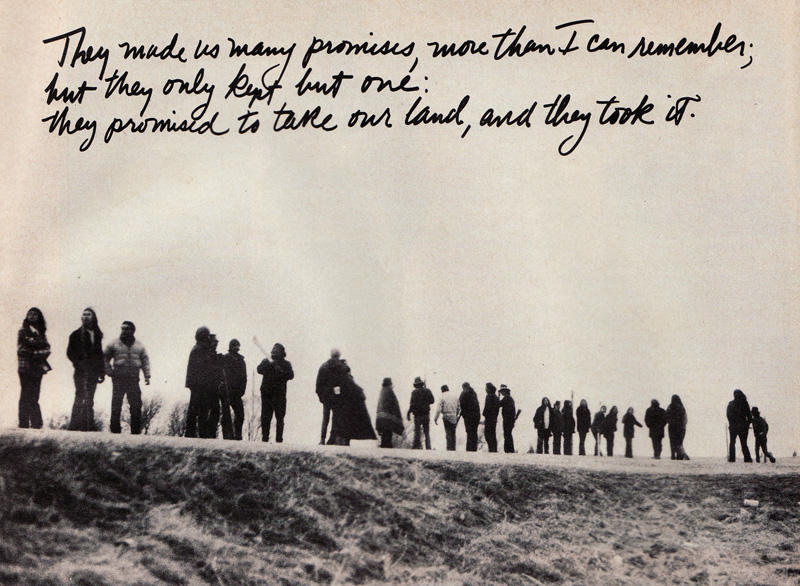 They made us many promises, more than I can remember;
but they only kept but one:
they promised to take our land, and they took it.